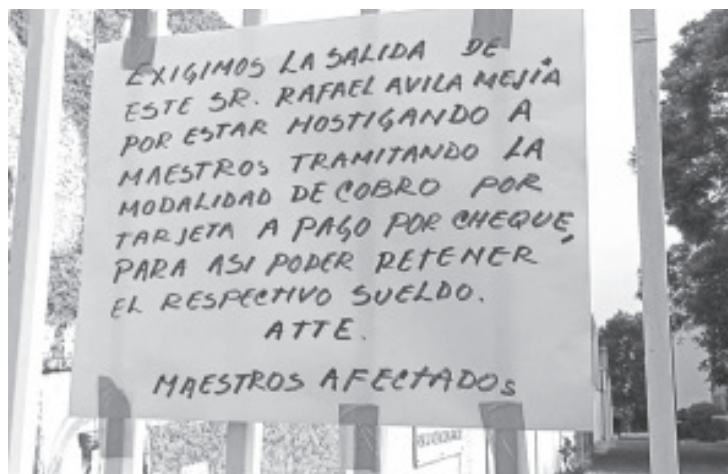 EXIGIMOS LA SALIDA DE
ESTE SR. RAFAEL AVILA MEJÍA
POR ESTAR HOSTIGANDO A
MAESTROS TRAMITANDO LA
MODALIDAD DE COBRO POR
TARJETA A PAGO POR CHEQUE,
PARA ASI PODER RETENER
EL RESPECTIVO SUELDO.
ATTE.
MAESTROS AFECTADOS